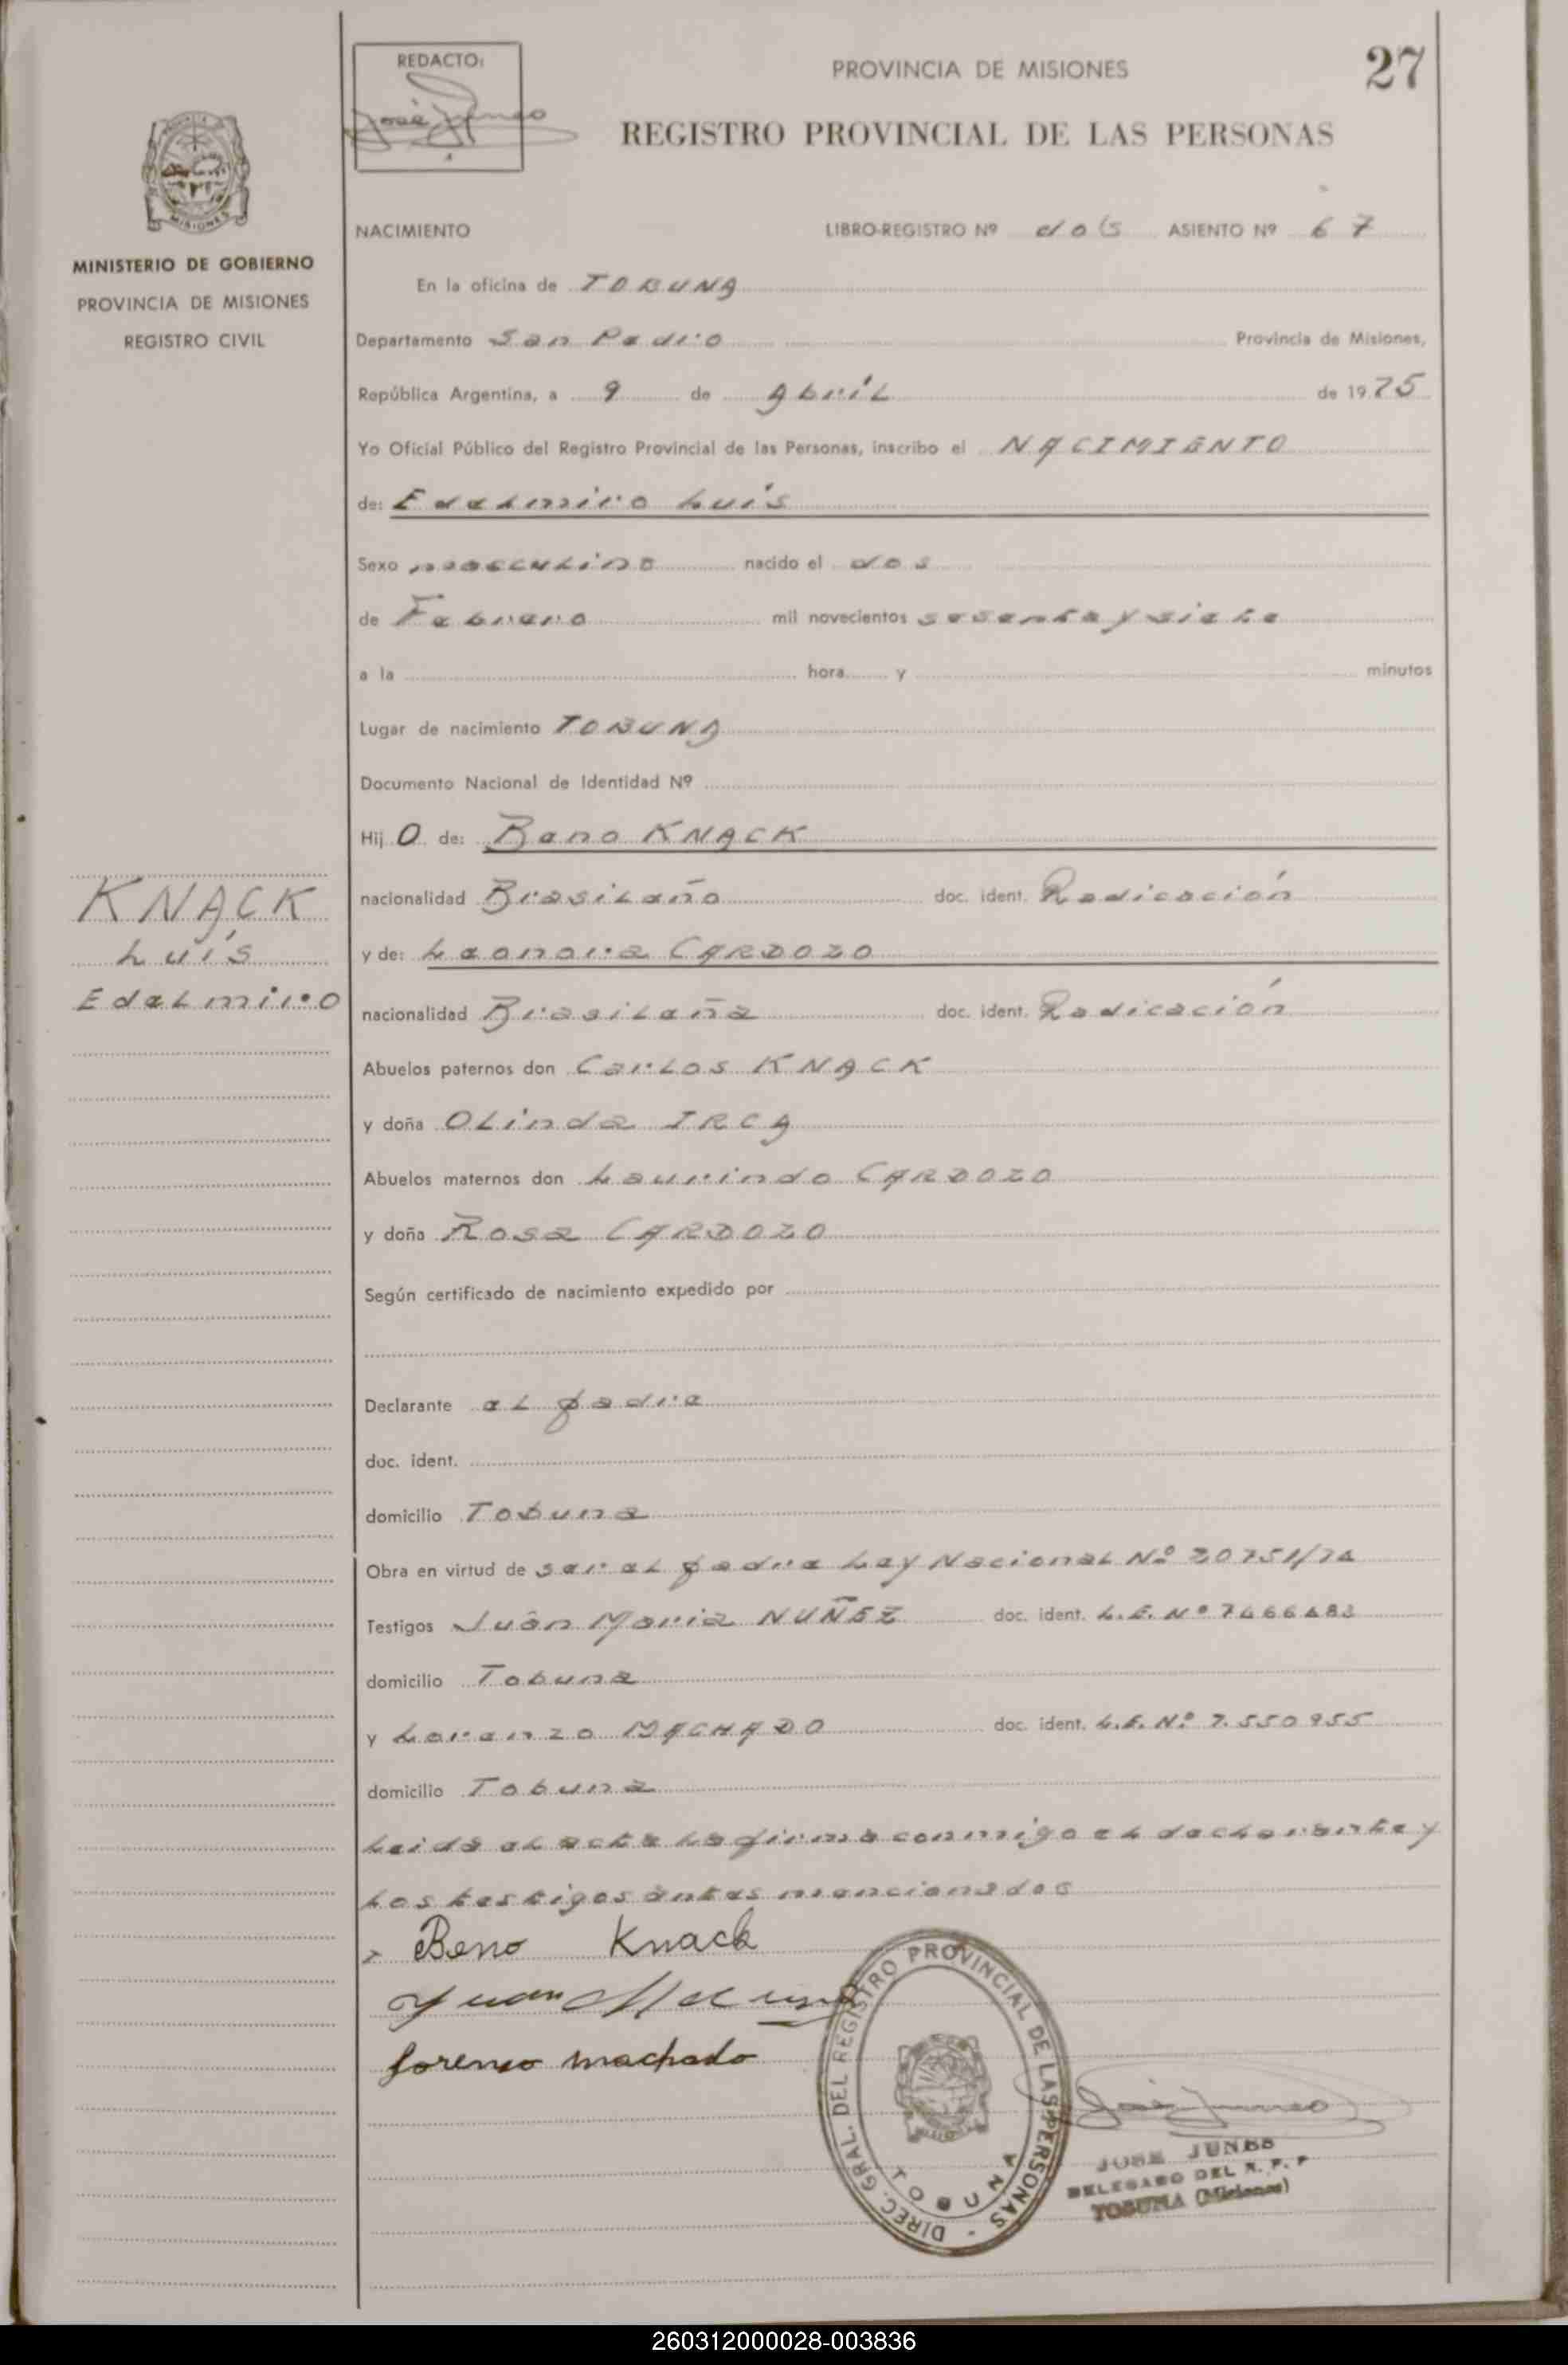 REDACTO:
PROVINCIA DE MISIONES
27
REGISTRO PROVINCIAL DE LAS PERSONAS
MISIONES
MINISTERIO DE GOBIERNO
PROVINCIA DE MISIONES
REGISTRO CIVIL
NACIMIENTO LIBRO-REGISTRO Nº dos ASIENTO Nº 67
En la oficina de TOBUNA
Departamento San Pedro Provincia de Misiones,
República Argentina, a 9 de Abril de 1975
Yo Oficial Público del Registro Provincial de las Personas, inscribo el NACIMIENTO
de: Edelmiro Luís
Sexo masculino nacido el dos
de Febrero mil novecientos sesenta y siete
a la hora y minutos
Lugar de nacimiento TOBUNA
Documento Nacional de Identidad Nº
Hij O de: Beno KNACK
nacionalidad Brasileño doc. ident. Radicación
y de: Leonora CARDOZO
nacionalidad Brasileña doc. ident. Radicación
KNACK
Luís
Edelmiro
Abuelos paternos don Carlos KNACK
y doña OLinda IRCA
Abuelos maternos don Laurindo CARDOZO
y doña Rosa CARDOZO
Según certificado de nacimiento expedido por
Declarante el padre
doc. ident.
domicilio Tobuna
Obra en virtud de ser el padre Ley Nacional Nº 20751/74
Testigos Juan Maria NUÑEZ doc. ident. L.E. Nº
domicilio Tobuna
y Lorenzo MACHADO doc. ident. L.E. Nº 7.550955
domicilio Tobuna
Leida el acta la firma conmigo el declarante y
Los testigos antes mencionados
Beno Knack
Juan
Lorenzo machado
DIREC. GRAL. DEL REGISTRO PROVINCIAL DE LAS PERSONAS -
TOBUNA
JOSE JUNES
DELEGADO DEL R. P. P
TOBUNA (Misiones)
260312000028-003836